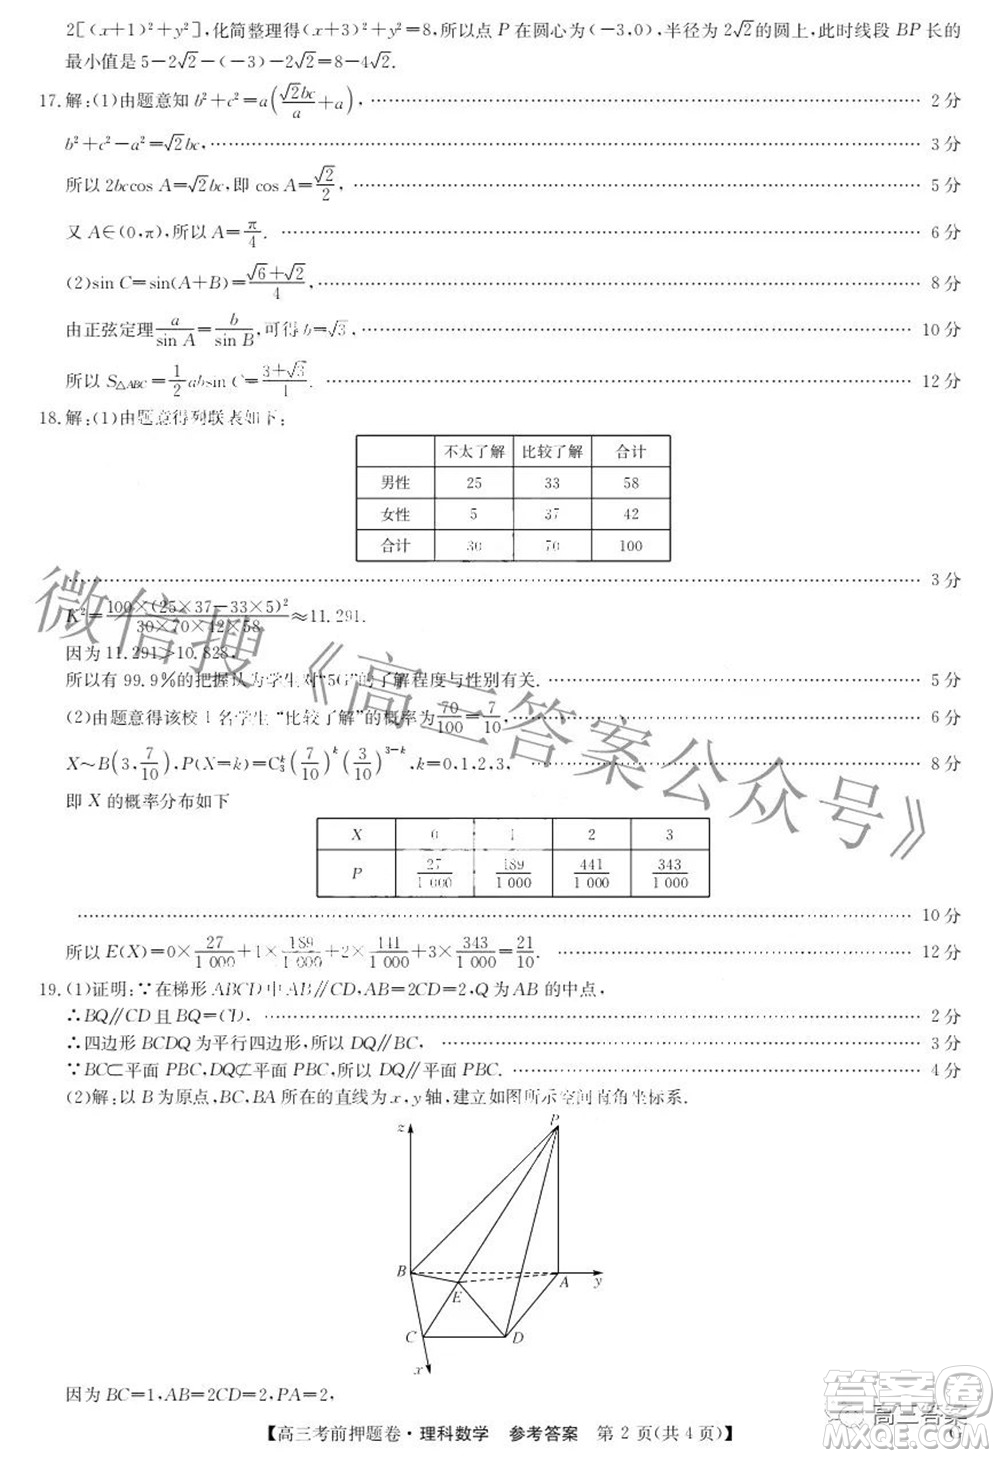 2[(x+1)²+y²],化简整理得(x+3)²+y²=8,所以点 P 在圆心为(-3,0),半径为 2√2的圆上,此时线段 BP 长的
最小值是 5-2√2-(-3)-2√2=8-4√2.
17.解:(1)由题意知 b²+c²=a(√2bc/a+a), 2 分
b²+c²-a²=√2bc, 3 分
所以 2bccos A=√2bc,即 cos A=√2/2, 5 分
又 A∈(0,π),所以 A=π/4. 6 分
(2)sin C=sin(A+B)=(√6+√2)/4, 8 分
由正弦定理a/sin A=b/sin B,可得 b=√3, 10 分
所以 S△ABC=1/2 absin C=(3+√3)/4. 12 分
18.解:(1)由题意得列联表如下:
不太了解 比较了解 合计
男性 25 33 58
女性 5 37 42
合计 30 70 100
3 分
K²=100×(25×37-33×5)²/(30×70×42×58)≈11.291.
因为 11.291>10.828,
所以有 99.9%的把握认为学生对“5G”的了解程度与性别有关. 5 分
(2)由题意得该校 1 名学生“比较了解”的概率为70/100=7/10, 6 分
X~B(3,7/10),P(X=k)=C₃ᵏ(7/10)ᵏ(3/10)³⁻ᵏ,k=0,1,2,3, 8 分
即 X 的概率分布如下
X 0 1 2 3
P 27/1 000 189/1 000 441/1 000 343/1 000
10 分
所以 E(X)=0×27/1 000+1×189/1 000+2×441/1 000+3×343/1 000=21/10. 12 分
19.(1)证明:∵在梯形 ABCD 中 AB∥CD,AB=2CD=2,Q 为 AB 的中点,
∴BQ∥CD 且 BQ=CD. 2 分
∴四边形 BCDQ 为平行四边形,所以 DQ∥BC, 3 分
∵BC⊂平面 PBC,DQ⊄平面 PBC,所以 DQ∥平面 PBC. 4 分
(2)解:以 B 为原点,BC,BA 所在的直线为 x,y 轴,建立如图所示空间直角坐标系.
P
z
B
A
y
E
C
D
x
因为 BC=1,AB=2CD=2,PA=2,
【高三考前押题卷·理科数学 参考答案 第 2 页(共 4 页)】
G
微信搜《高三答案公众号》
高三答案
答案圈
MXQE.COM